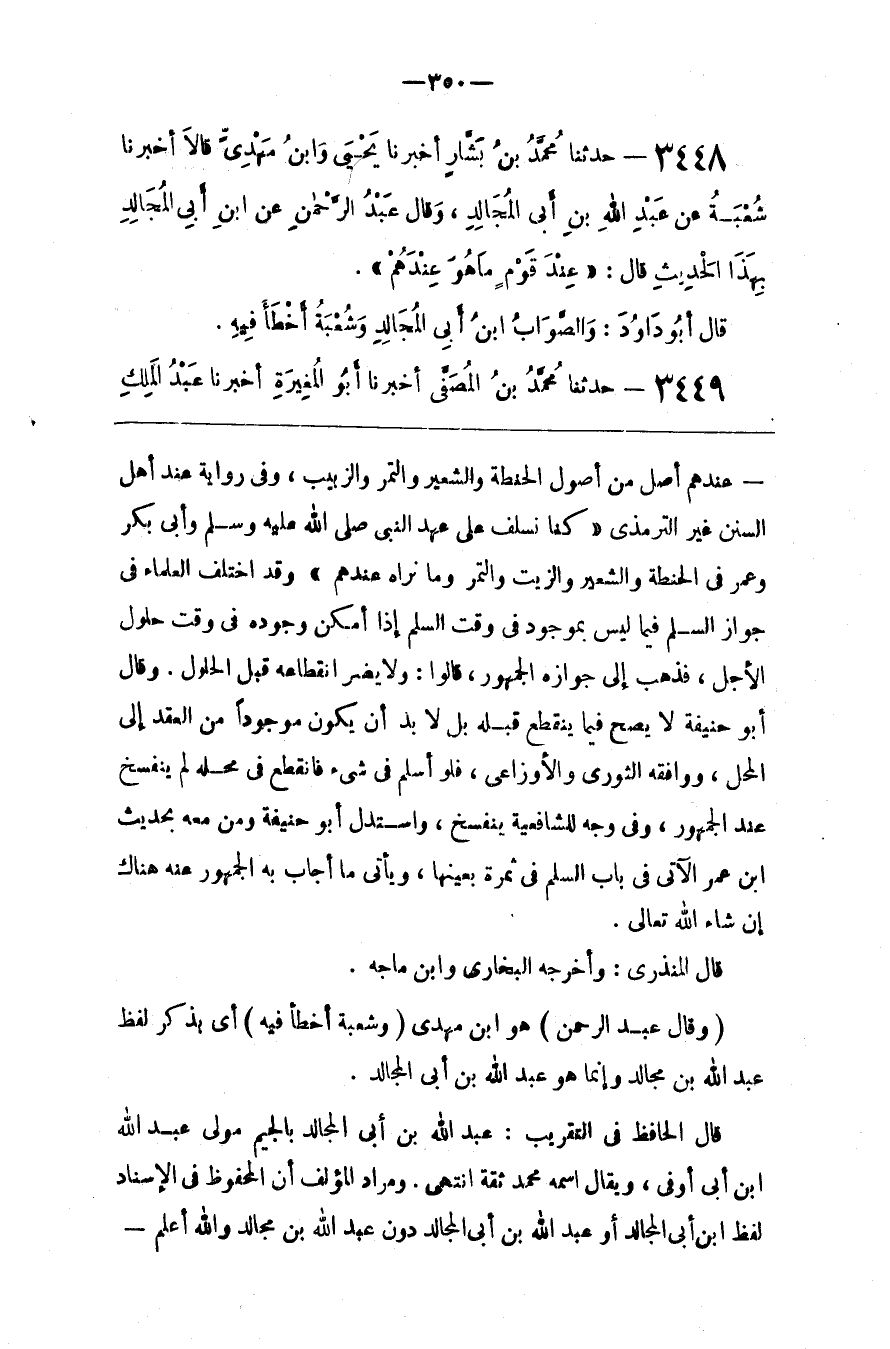 —٣٥٠—
٣٤٤٨ — حدثنا مُحمَّدُ بنُ بَشَّارٍ أخبرنا يَحْيَى وَابنُ مَهْدِىٍّ قالاَ أخبرنا
شُعْبَـةُ عن عَبْدِ اللهِ بنِ أَبى المُجَالِدِ ، وَقال عَبْدُ الرَّحْمٰنِ عن ابنِ أَبِي المُجَالِدِ
بِهَذَا الحَدِيثِ قال : « عِنْدَ قَوْمٍ مَاهُوَ عِنْدَهُمْ » .
قال أبُو دَاوُدَ : وَالصَّوَابُ ابنُ أَبِى المُجَالِدِ وَشُعْبَةُ أَخْطَأَ فِيهِ .
٣٤٤٩ — حدثنا مُحمَّدُ بنُ المُصَفَّى أخبرنا أَبُو المُغِيرَةِ أخبرنا عَبْدُ المَلِكِ
— عندهم أصل من أصول الحنطة والشعير والتمر والزبيب ، وفى رواية عند أهل
السنن غير الترمذى « كنا نسلف على عهد النبى صلى الله عليه وسـلم وأبى بكر
وعمر فى الحنطة والشعير والزيت والتمر وما نراه عندهم » وقد اختلف العلماء فى
جواز السـلم فيما ليس بموجود فى وقت السلم إذا أمـكن وجوده فى وقت حلول
الأجل ، فذهب إلى جوازه الجمهور ، قالوا : ولايضر انقطاعه قبل الحلول . وقال
أبو حنيفة لا يصح فيما ينقطع قبـله بل لا بد أن يكون موجوداً من العقد إلى
المحل ، ووافقه الثورى والأوزاعى ، فلو أسلم فى شىء فانقطع فى محـله لم ينفسخ
عند الجمهور ، وفى وجه للشافعية ينفسخ ، واسـتدل أبو حنيفة ومن معه بحديث
ابن عمر الآتى فى باب السلم فى ثمرة بعينها ، ويأتى ما أجاب به الجمهور عنه هناك
إن شاء الله تعالى .
قال المنذرى : وأخرجه البخارى وابن ماجه .
( وقال عبـد الرحمن ) هو ابن مهدى ( وشعبة أخطأ فيه ) أى بذكر لفظ
عبد الله بن مجالد وإنما هو عبد الله بن أبى المجالد .
قال الحافظ فى التقريب : عبد الله بن أبى المجالد بالجيم مولى عبـد الله
ابن أبى أوفى ، ويقال اسمه محمد ثقة انتهى . ومراد المؤلف أن المحفوظ فى الإسناد
لفظ ابن أبى المجالد أو عبد الله بن أبى المجالد دون عبد الله بن مجالد والله أعلم —